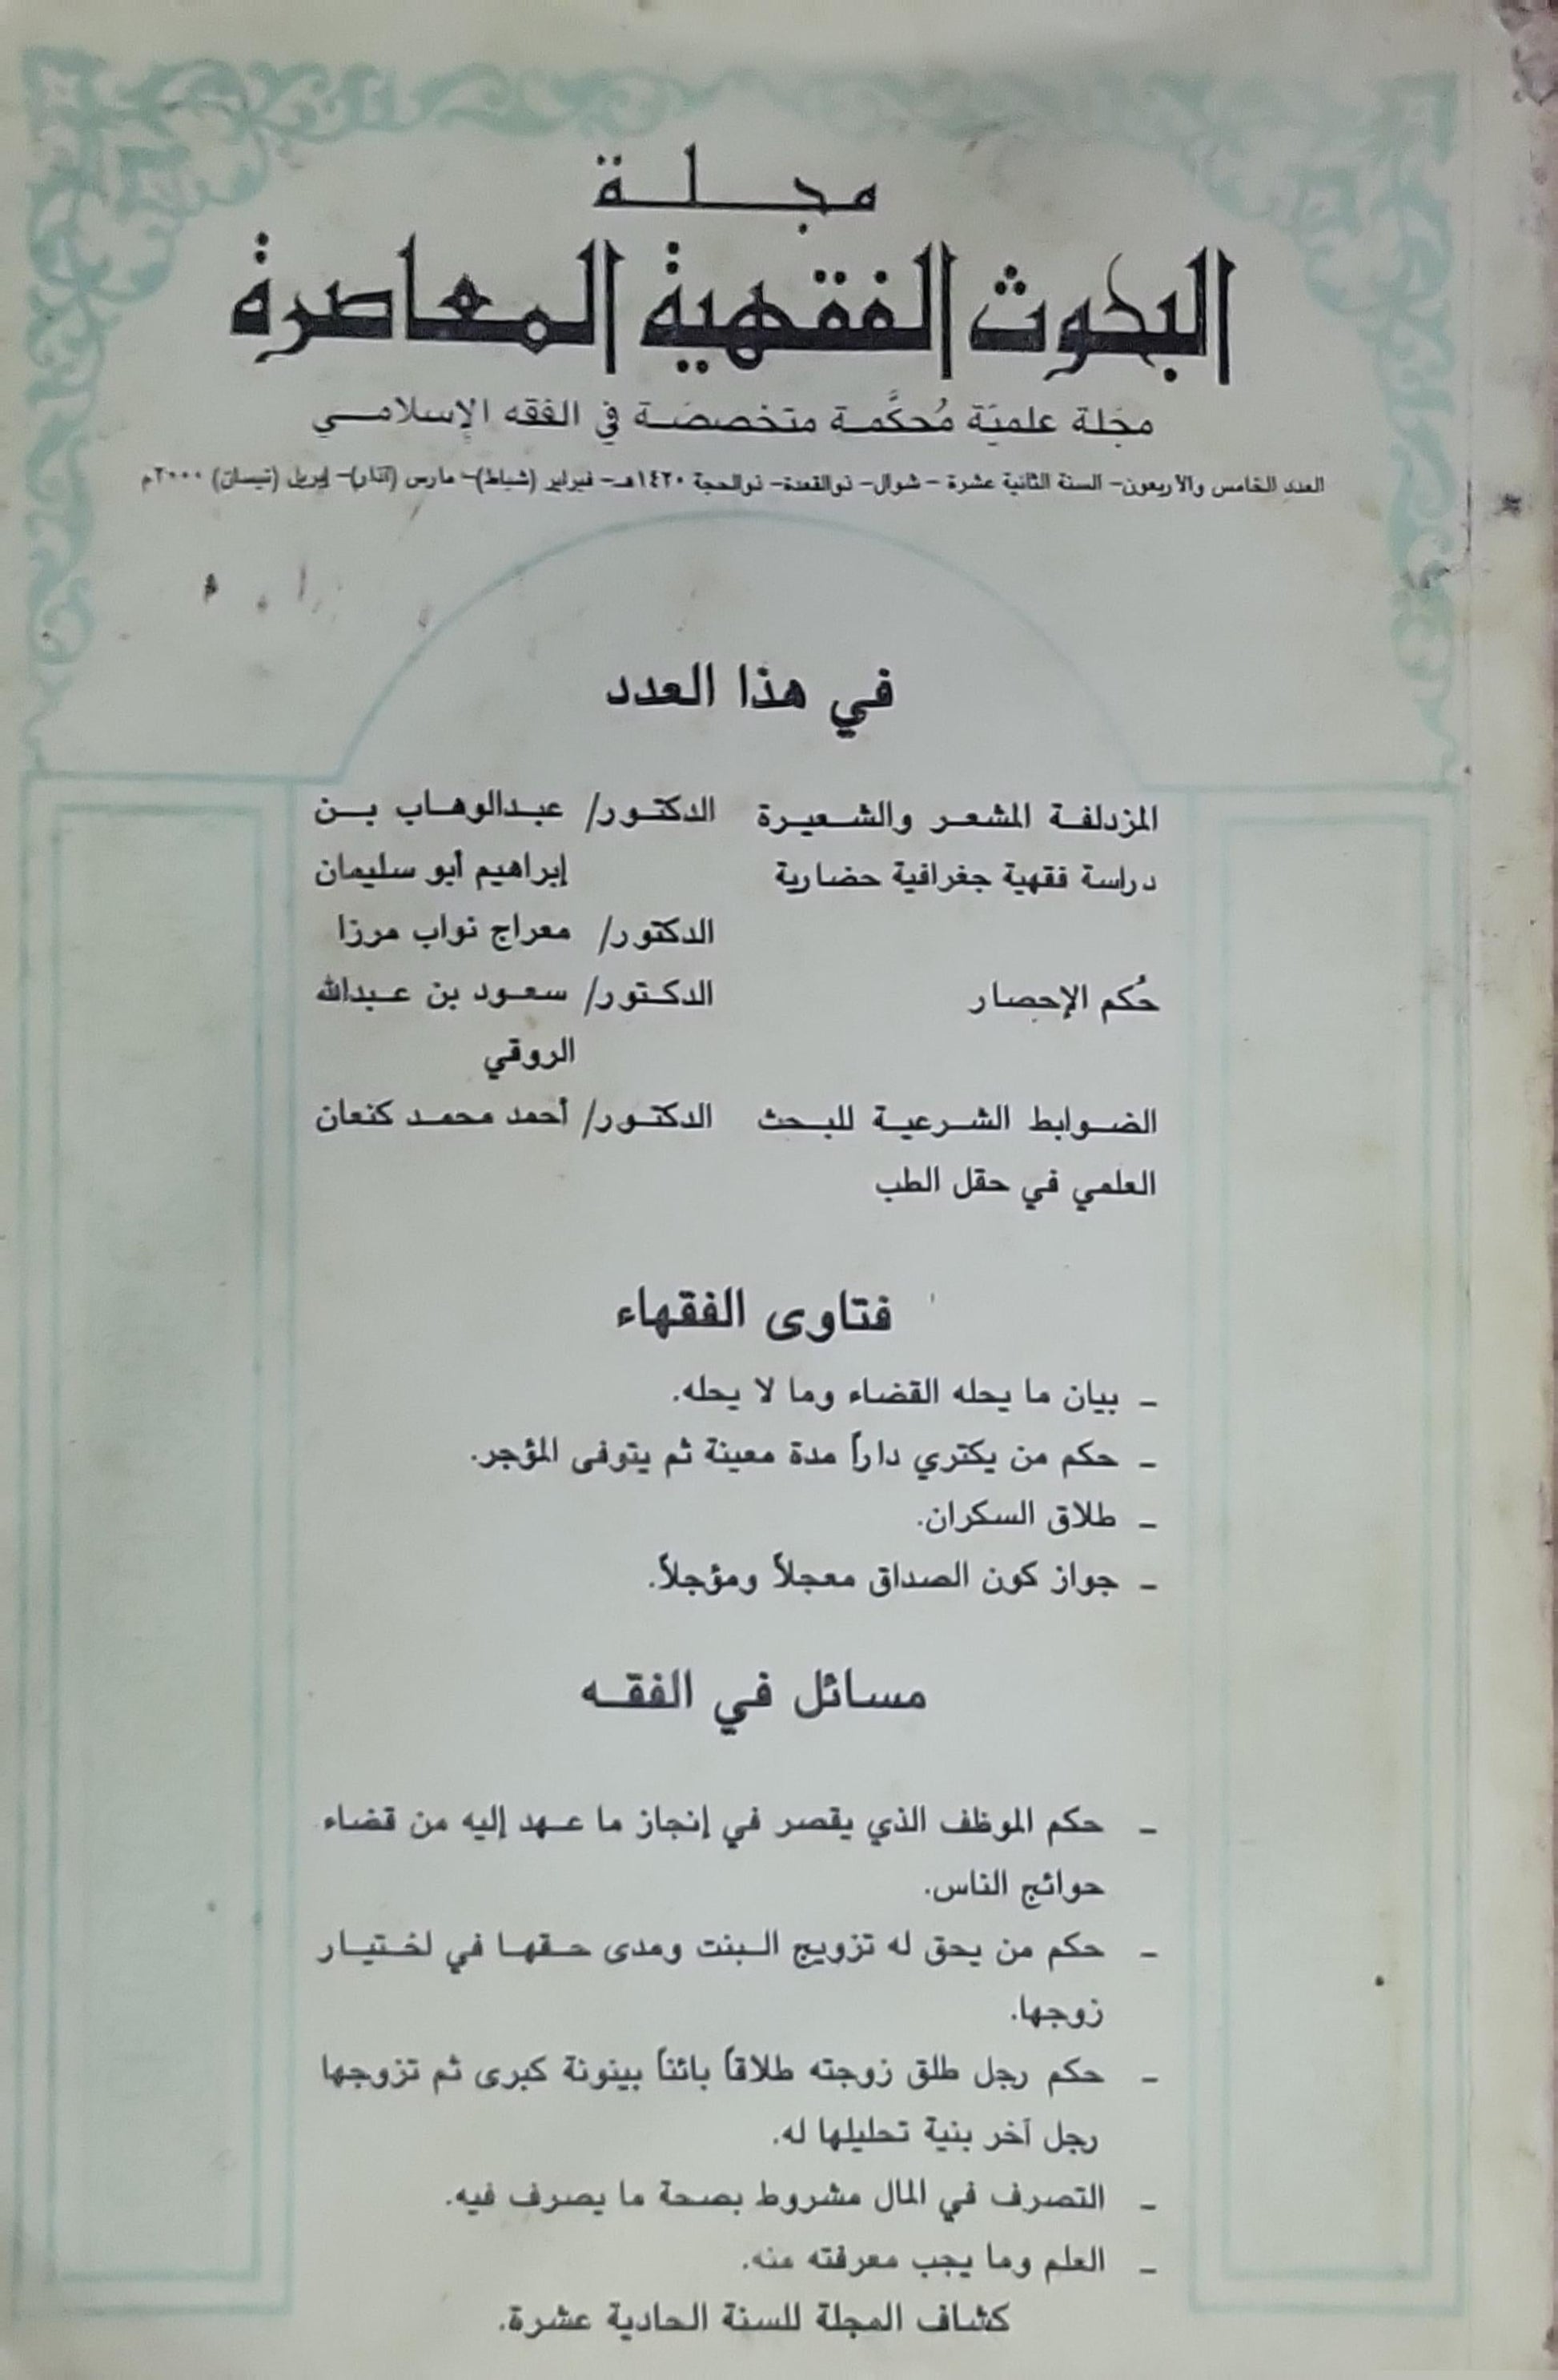 مجلة
البحوث الفقهية المعاصرة
مجَلة علميَة مُحكَّمة متخصصَة في الفقه الإسلامي
العدد الخامس والأربعون- السنة الثانية عشرة - شوال- ذوالقعدة- ذوالحجة ١٤٢٠هـ- فبراير (شباط)- مارس (آذار)- إبريل (نيسان) ٢٠٠٠م
في هذا العدد
المزدلفة المشعر والشعيرة الدكتور/ عبدالوهاب بن
دراسة فقهية جغرافية حضارية إبراهيم أبو سليمان
الدكتور/ معراج نواب مرزا
حُكم الإحصار الدكتور/ سعود بن عبدالله
الروقي
الضوابط الشرعية للبحث الدكتور/ أحمد محمد كنعان
العلمي في حقل الطب
فتاوى الفقهاء
- بيان ما يحله القضاء وما لا يحله.
- حكم من يكتري داراً مدة معينة ثم يتوفى المؤجر.
- طلاق السكران.
- جواز كون الصداق معجلاً ومؤجلاً.
مسائل في الفقه
- حكم الموظف الذي يقصر في إنجاز ما عهد إليه من قضاء
حوائج الناس.
- حكم من يحق له تزويج البنت ومدى حقها في اختيار
زوجها.
- حكم رجل طلق زوجته طلاقاً بائناً بينونة كبرى ثم تزوجها
رجل آخر بنية تحليلها له.
- التصرف في المال مشروط بصحة ما يصرف فيه.
- العلم وما يجب معرفته منه.
كشاف المجلة للسنة الحادية عشرة.